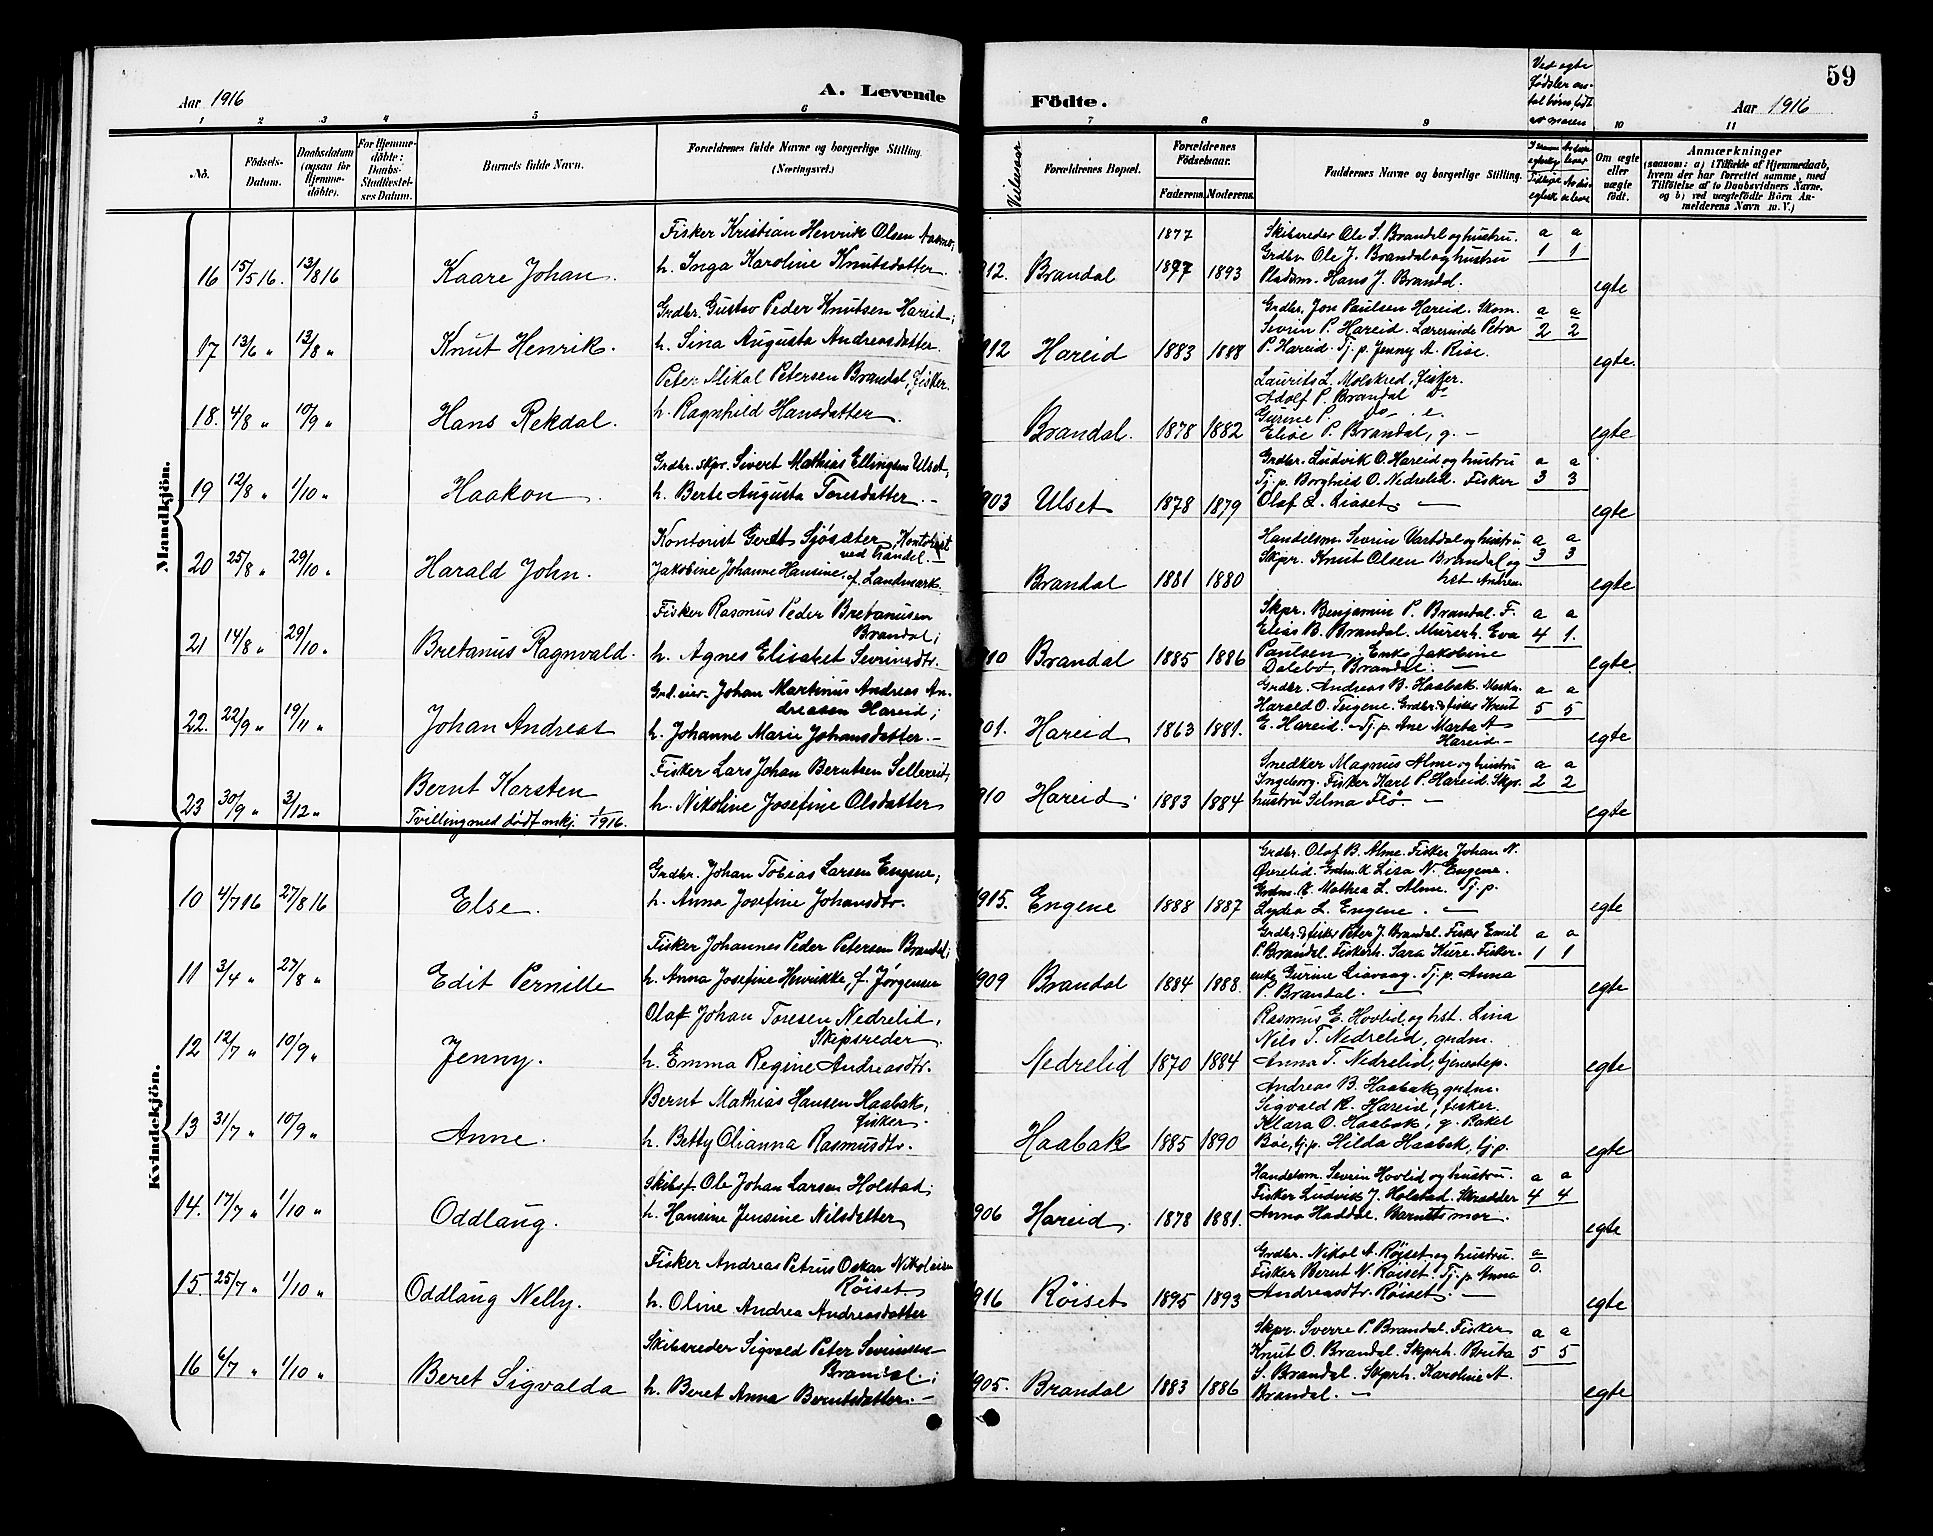 Aar 1916
A. Levende
Födte.
59
Aar 1916
Ved egte
födsler an-
tal börn, födt
av moren
1 2 3 4 5 6
7 8 9 10 11
No.
Födsels-
Datum.
Daabsdatum
(ogsaa for
Hjemme-
döbte).
For Hjemme-
döbte:
Daabs-
Stadfæstel-
ses Datum.
Barnets fulde Navn.
Forældrenes fulde Navne og borgerlige Stilling.
(Næringsvei.)
Vielsesaar
Forældrenes Bopæl.
Forældrenes
Födselsaar.
Faderens. Moderens.
Faddernes Navne og borgerlige Stilling.
Om ægte
eller
uægte
født.
Anmærkninger
(saasom: a) i Tilfælde af Hjemmedaab,
hvem der har forrettet samme, med
Tilföielse af to Daabsvidners Navne.
og b) ved uægtefödte Börn An-
melderens Navn m. V.)
Mandkjön.
Fisker Kristian Henrik Olsen
16 15/5 16. 13/8 16 Kaare Johan. h. Inga Karoline Knutsdatter
912. Brandal 1877 1897 1893
Skibsreder Ole S. Brandal og hustru.
Grdbr. Ole J. Brandal og hustru
Pladsm. Hans J. Brandal.
a a
1 1
egte
Grdbr. Gustav Peder Knutsen Hareid;
17 13/6 " 13/8 " Knut Henrik. h. Sina Augusta Andreasdatter.
912 Hareid 1883 1888
Grdbr. Jon Paulsen Hareid. Skom.
Sevrin P. Hareid. Lærerinde Petra
P. Hareid. Tj. p. Jenny A. Rise.
a a
2 2
egte.
Peter Mikal Petersen Brandal, fisker.
18. 4/8 " 10/9 " Hans Rekdal. h. Ragnhild Hansdatter
Brandal. 1878 1882
Laurits L. Molskred, fisker.
Adolf P. Brandal Do
Gurine P. do e.
Elise P. Brandal, g. -
egte
Grdbr. skpr. Sivert Mathias Ellingsen Ulset,
19 12/8 " 1/10 " Haakon h. Berte Augusta Toresdatter. -
903 Ulset 1878 1879
Grdbr. Ludvik O. Hareid og hustru
Tj. p. Borghild O. Nedrelid. Fisker
Olaf L. Liaset. -
a a
3 3
egte
Kontorist Gerdt Sjösæter, Kontorist
ved handel. -
20 25/8 " 29/10 " Harald John. Jakobine Johanne Hansine, f. Landmark.
Brandal 1881 1880
Handelsm. Sevrin Vartdal og hustru
Skpr. Knut Olsen Brandal og
hst Andrea.
a a
3 3
egte
Fisker Rasmus Peder Bretanusen
Brandal;
21 14/8 " 29/10 " Bretanus Ragnvald. h. Agnes Elisabet Sevrinsdtr.
910 Brandal 1885 1886
Skpr. Benjamin P. Brandal. F.
Elias B. Brandal. Murerh. Eva
Paulsen. Enke Jakobine
Dalebø Brandal. -
a a
4 1.
egte.
Grd.eier. Johan Martinus Andreas An-
dreasen Hareid;
22. 22/9 " 19/11 " Johan Andreas h. Johanne Marie Johansdatter. -
901. Hareid 1863 1881.
Grdbr. Andreas B. Haabak. Mask.
Harald O. Eugene. Grdbr. & fisker Knut
E. Hareid. Tj. p. Ane Marta A
Hareid -
a a
5 5
egte
Fisker Lars Johan Berntsen Sellereid,
23 30/9 " 3/12 " Bernt Karsten h. Nikoline Josefine Olsdatter
Tvilling med dödf. mkj. 1/1916.
910 Hareid. 1883 1884
Snedker Magnus Alme og hustru
Ingeborg. Fisker Karl P. Hareid. Skpr.
hustru Selma Flö -
a a
2 2
egte
Kvindekjön.
Grdbr. Johan Tobias Larsen Engene;
10 4/7 16 27/8 16 Else. h. Anna Josefine Johansdtr.
915. Engene 1888 1887
Grdbr. Olaf B. Alme. Fisker Johan N.
Överelid. Grdm.k Lisa N. Engene.
Grdm. k. Mathea L. Alme. Tj. p.
Lydia L. Engene. -
egte
Fisker Johannes Peder Petersen Brandal;
11 3/4 " 27/8 " Edit Pernille h. Anna Josefine Henrikke, f. Jörgensen
909 Brandal 1884 1888.
Grdbr. & fisker Peter J. Brandal. Fisker Emil
P. Brandal. Fiskerh. Sara Kure. Fisker-
enke Gurine Liavaag. Tj. p. Anna
P. Brandal. -
a a
1 1
egte
Olaf Johan Toresen Nedrelid,
Skipsreder.
12 12/7 " 10/9 " Jenny. h. Emma Regine Andreasdtr.
Nedrelid 1870 1884
Rasmus E. Hovlid og hst. Lina
Nils T. Nedrelid, grdm.
Anna T. Nedrelid, tjenestep.
egte
Bernt Mathias Hansen Haabak,
fisker.
13 31/7 " 10/9 " Anne. h. Betty Olianna Rasmusdtr.
Haabak 1885 1890
Andreas B. Haabak, grdm.
Sigvald R. Hareid, fisker.
Klara O. Haabak, g. Rakel
Böe, tj.p. Hilda Haabak, tj.p.
egte
Skibsf. Ole Johan Larsen Holstad;
14. 17/7 " 1/10 " Oddlaug. h. Hansine Jensine Nilsdatter
906 Hareid. 1878 1881.
Handelsm. Sevrin Hovlid og hustru.
Fisker Ludvik J. Holstad. Skrædder
Anna Haddal. Barnets mor.
a a
4 4
egte
Fisker Andreas Petrus Oskar Nikolaisen
Röiset
15. 25/7 " 1/10 " Oddlaug Nelly. h. Oline Andrea Andreasdatter
916 Röiset 1895 1893
Grdbr. Nikol A. Röiset og hustru.
Fisker Bernt N. Röiset. Tj. p. Anna
Andreasdtr. Röiset. -
a
0.
egte
Skibsreder Sigvald Peter Sevrinsen
Brandal.;
16 6/7 " 1/10 " Beret Sigvalda h. Beret Anna Berntsdatter. -
905. Brandal 1883 1886
Skpr. Sverre P. Brandal. Fisker
Knut O. Brandal. Skprh. Brita
S. Brandal. Skprh. Karoline A.
Brandal. -
a a
5 5
egte